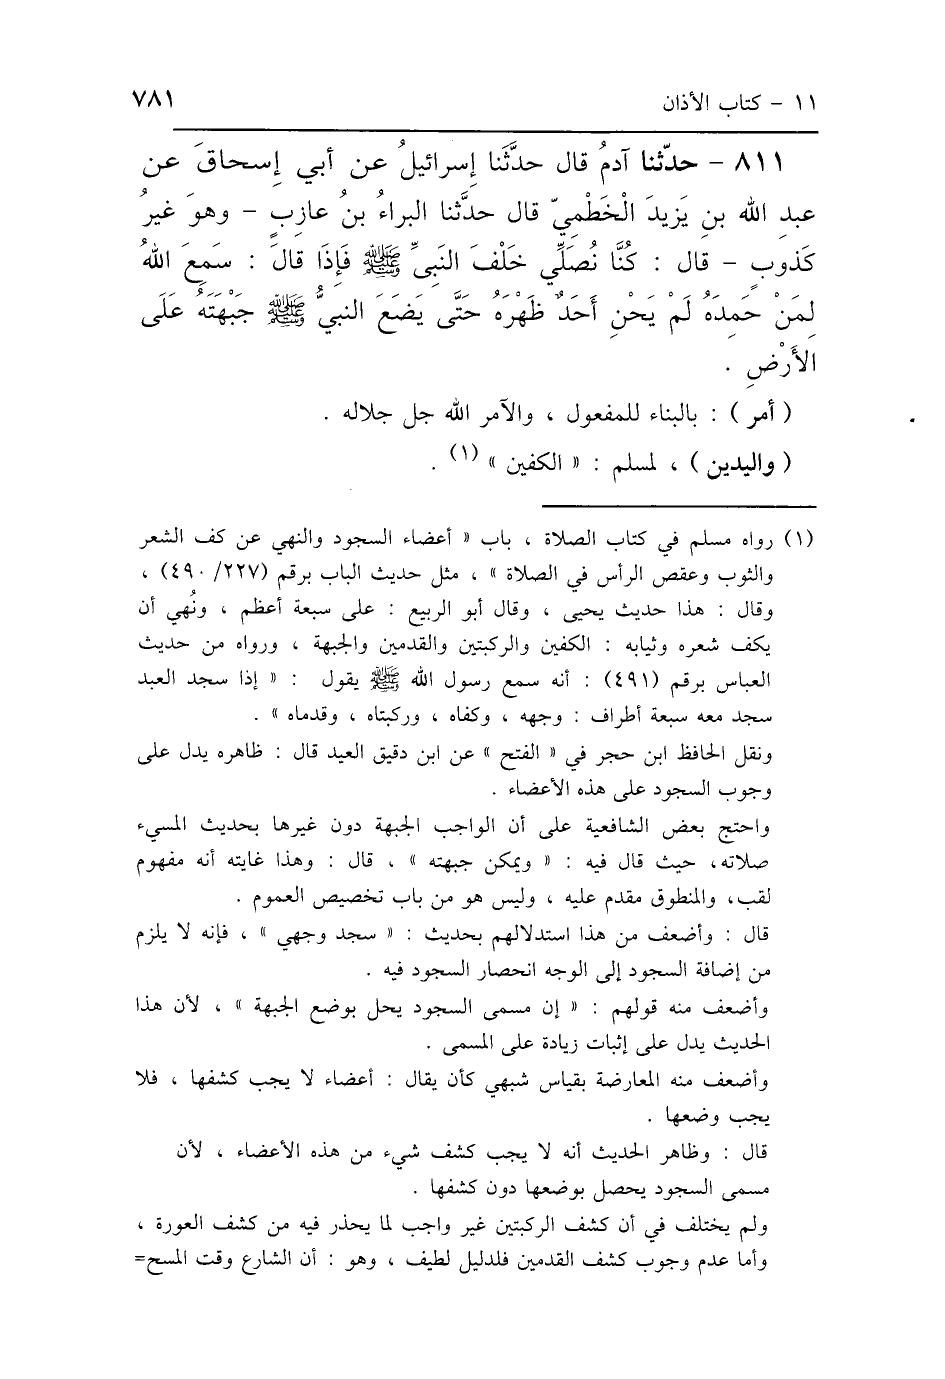 ١١ - كتاب الأذان ٧٨١
٨١١ - حدّثنا آدمُ قال حدَّثَنا إسرائيلُ عن أبي إسحاقَ عن
عبدِ الله بنِ يَزِيدَ الْخَطْمِيّ قال حدَّثنا البراءُ بنُ عازِبٍ - وهوَ غيرُ
كَذوبٍ - قال : كُنَّا نُصَلِّي خَلْفَ النَبيِّ ﷺ فَإِذَا قالَ : سَمِعَ اللهُ
لِمَنْ حَمِدَهُ لَمْ يَحْنِ أَحَدٌ ظَهْرَهُ حَتَّى يَضَعَ النبيُّ ﷺ جَبْهَتَهُ عَلَى
الأَرْضِ .
( أمر ) : بالبناء للمفعول ، والآمر الله جل جلاله .
( واليدين ) ، لمسلم : « الكفين » (١) .
(١) رواه مسلم في كتاب الصلاة ، باب « أعضاء السجود والنهي عن كف الشعر
والثوب وعقص الرأس في الصلاة » ، مثل حديث الباب برقم (٤٩٠/٢٢٧) ،
وقال : هذا حديث يحيى ، وقال أبو الربيع : على سبعة أعظم ، ونُهي أن
يكف شعره وثيابه : الكفين والركبتين والقدمين والجبهة ، ورواه من حديث
العباس برقم (٤٩١) : أنه سمع رسول الله ﷺ يقول : « إذا سجد العبد
سجد معه سبعة أطراف : وجهه ، وكفاه ، وركبتاه ، وقدماه » .
ونقل الحافظ ابن حجر في « الفتح » عن ابن دقيق العيد قال : ظاهره يدل على
وجوب السجود على هذه الأعضاء .
واحتج بعض الشافعية على أن الواجب الجبهة دون غيرها بحديث المسيء
صلاته، حيث قال فيه : « ويمكن جبهته » ، قال : وهذا غايته أنه مفهوم
لقب، والمنطوق مقدم عليه ، وليس هو من باب تخصيص العموم .
قال : وأضعف من هذا استدلالهم بحديث : « سجد وجهي » ، فإنه لا يلزم
من إضافة السجود إلى الوجه انحصار السجود فيه .
وأضعف منه قولهم : « إن مسمى السجود يحل بوضع الجبهة » ، لأن هذا
الحديث يدل على إثبات زيادة على المسمى .
وأضعف منه المعارضة بقياس شبهي كأن يقال : أعضاء لا يجب كشفها ، فلا
يجب وضعها .
قال : وظاهر الحديث أنه لا يجب كشف شيء من هذه الأعضاء ، لأن
مسمى السجود يحصل بوضعها دون كشفها .
ولم يختلف في أن كشف الركبتين غير واجب لما يحذر فيه من كشف العورة ،
وأما عدم وجوب كشف القدمين فلدليل لطيف ، وهو : أن الشارع وقت المسح=